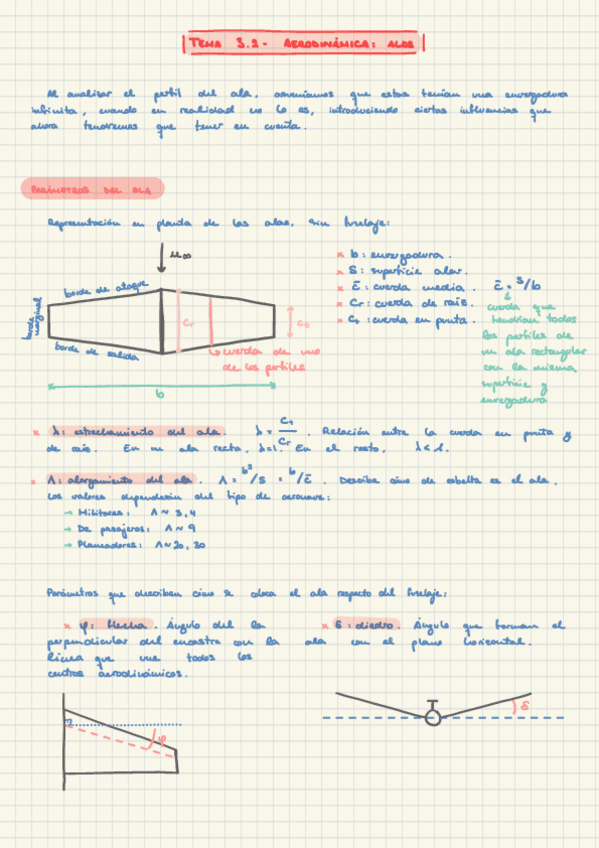 TEMA 3.2- AERODINÁMICA: ALAS
Al analizar el perfil del ala, asumíamos que estas tenían una envergadura
infinita, cuando en realidad no lo es, introduciendo ciertas influencias que
ahora tendremos que tener en cuenta.
PARÁMETROS DEL ALA
Representación en planta de las alas, sin fuselaje:
u∞
borde de ataque
borde marginal
borde de salida
Cr
Ct
cuerda de uno
de los perfiles
b
× b: envergadura.
× S: superficie alar.
× c̄: cuerda media. c̄ = S/b
× Cr: cuerda de raíz.
× Ct: cuerda en punta.
cuerda que
tendrían todos
los perfiles de
un ala rectangular
con la misma
superficie y
envergadura
× λ: estrechamiento del ala. λ = Ct/Cr. Relación entre la cuerda en punta y
de raíz. En un ala recta, λ=1. En el resto, λ<1.
× Λ: alargamiento del ala. Λ = b²/S = b/c̄. Describe cómo de esbelta es el ala.
Los valores dependerán del tipo de aeronave:
→ Militares: Λ ~ 3,4
→ De pasajeros: Λ ~ 9
→ Planeadores: Λ ~ 20, 30
Parámetros que describen cómo se coloca el ala respecto del fuselaje:
× φ: flecha. Ángulo del la
perpendicular del encastre con la
línea que une todos los
centros aerodinámicos.
× δ: diedro. Ángulo que forman el
ala con el plano horizontal.
φ
δ